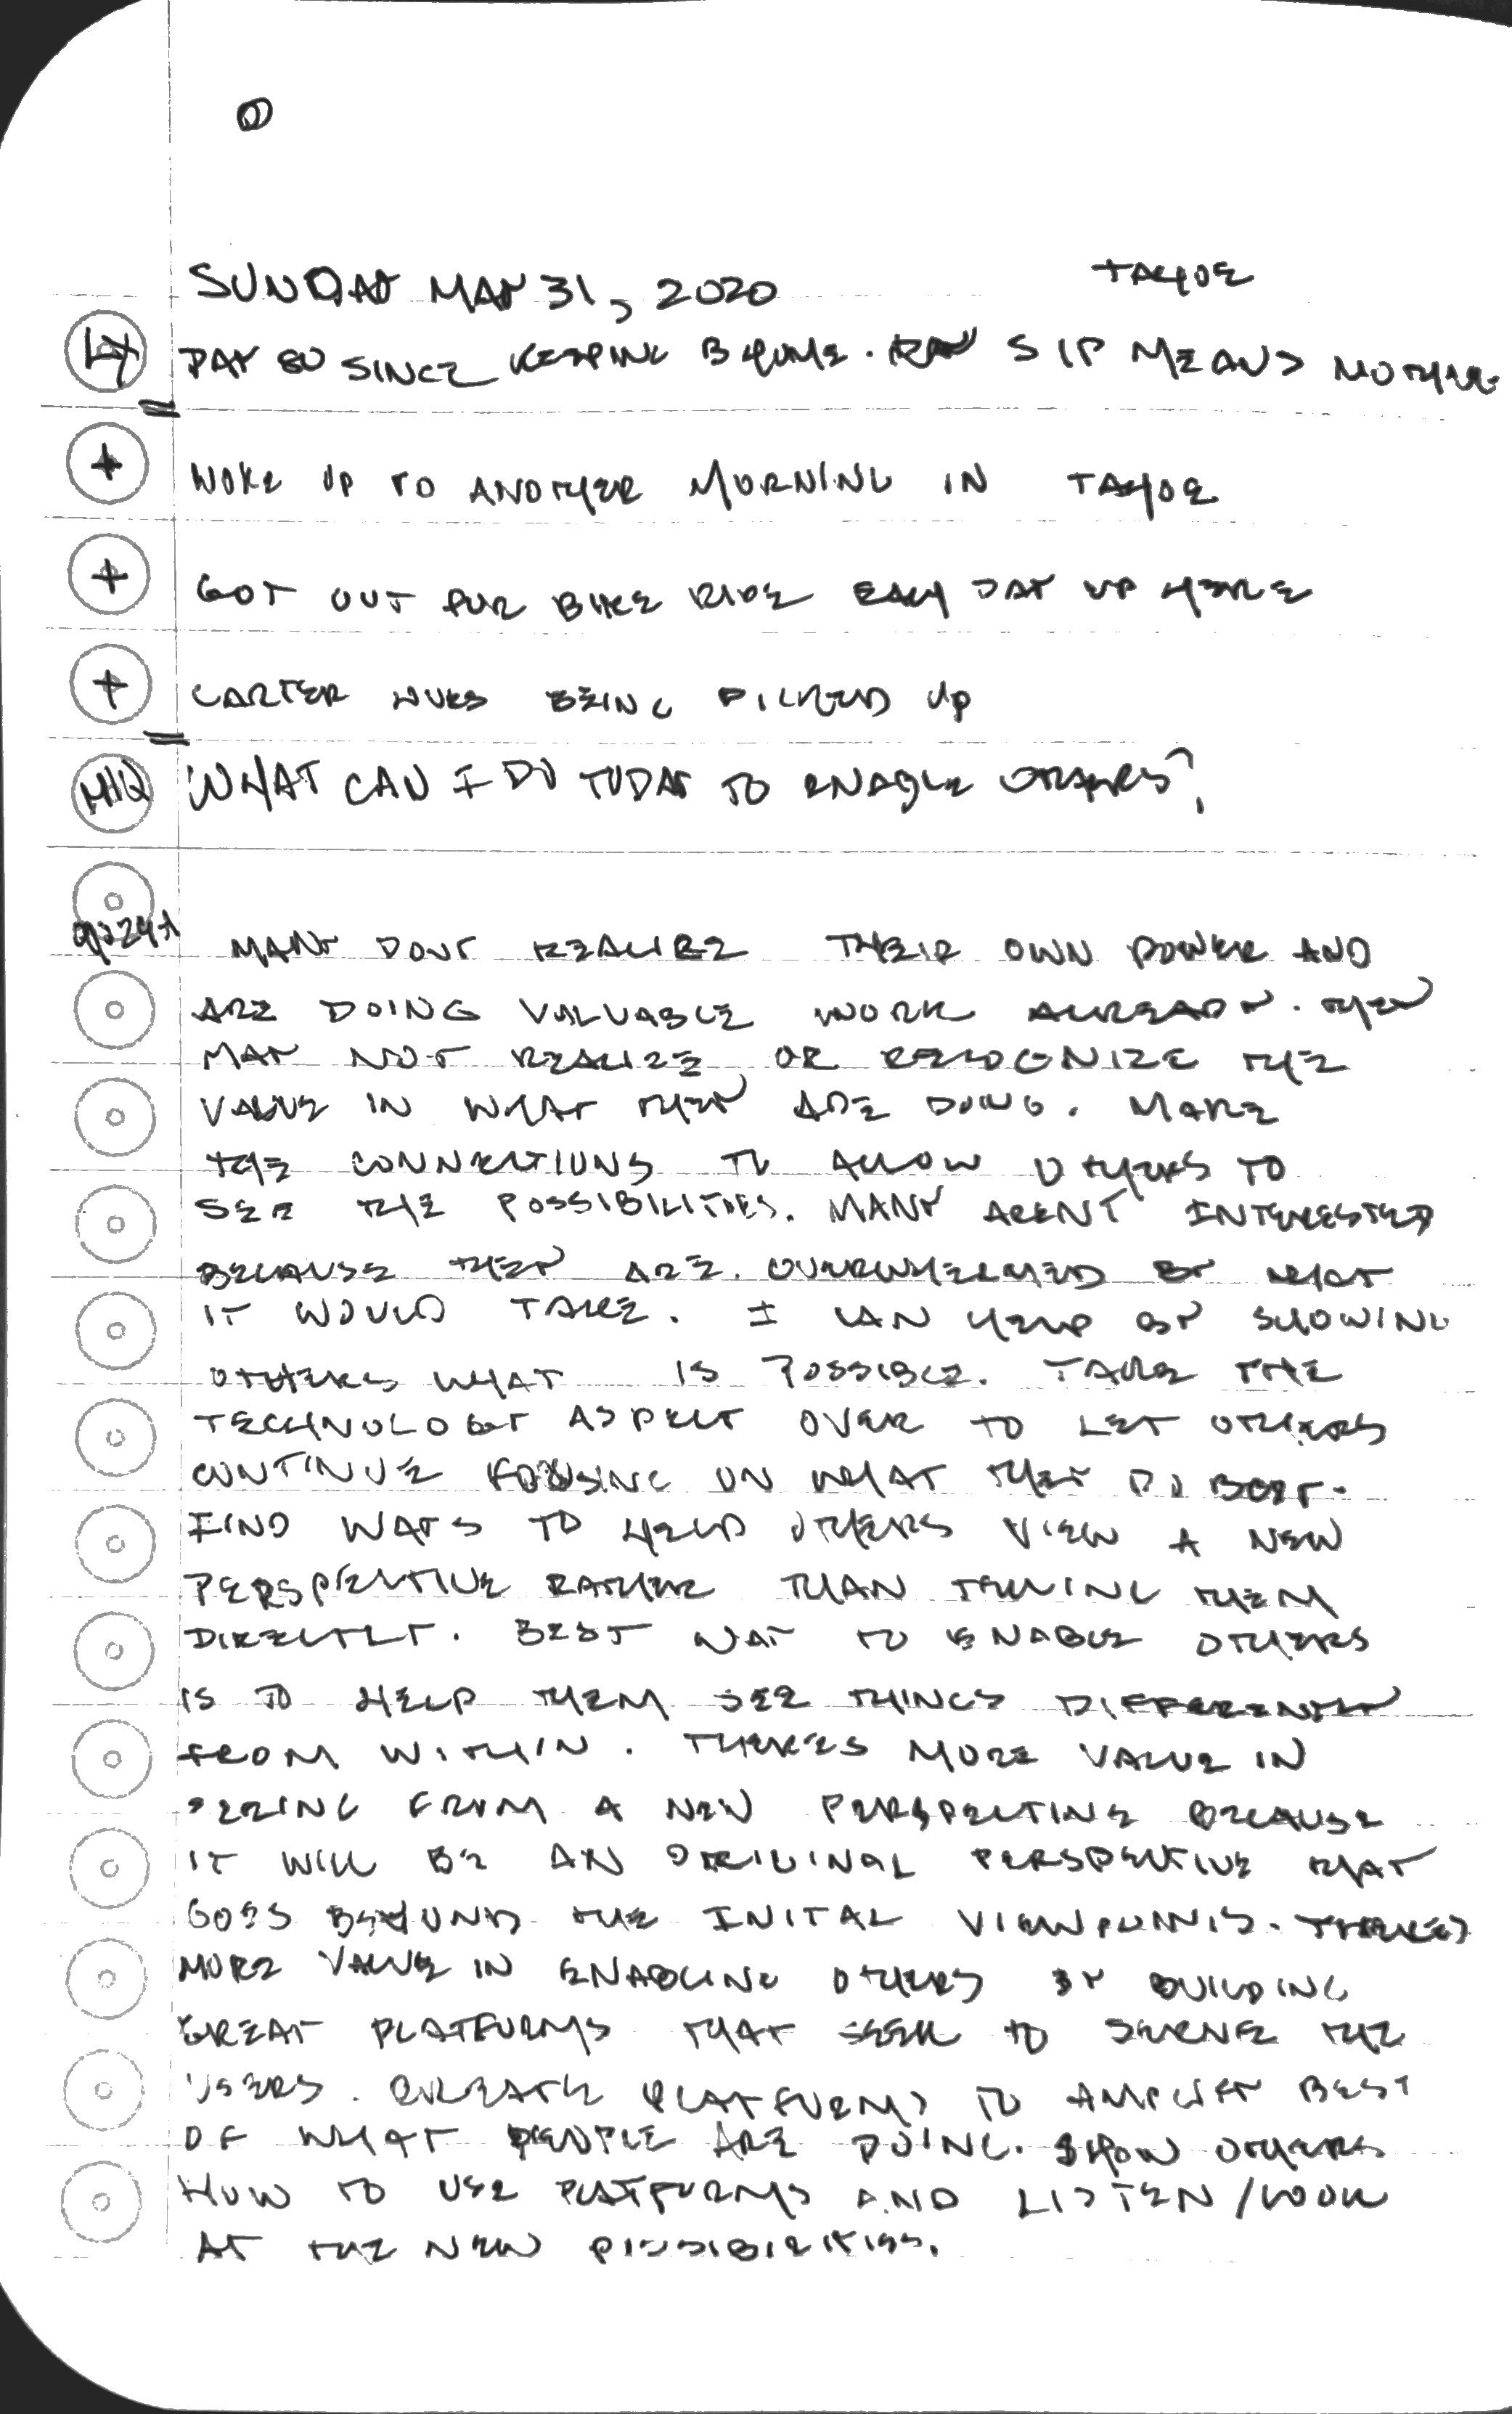 SUNDAY MAY 31, 2020 TAHOE
DAY 80 SINCE KEEPING B HOME. SIP MEANS NOTHING
+ WOKE UP TO ANOTHER MORNING IN TAHOE
+ GOT OUT FOR BIKE RIDE EACH DAY UP HERE
+ CARTER LOVES BEING PICKED UP
MIQ WHAT CAN I DO TODAY TO ENABLE OTHERS?
MANY DONT REALIZE THEIR OWN POWER AND
ARE DOING VALUABLE WORK ALREADY. THEY
MAY NOT REALIZE OR RECOGNIZE THE
VALUE IN WHAT THEY ARE DOING. MAKE
THE CONNECTIONS TO ALLOW OTHERS TO
SEE THE POSSIBILITIES. MANY ARENT INTERESTED
BECAUSE THEY ARE OVERWHELMED BY WHAT
IT WOULD TAKE. I CAN HELP BY SHOWING
OTHERS WHAT IS POSSIBLE. TAKE THE
TECHNOLOGY ASPECT OVER TO LET OTHERS
CONTINUE FOCUSING ON WHAT THEY DO BEST.
FIND WAYS TO HELP OTHERS VIEW A NEW
PERSPECTIVE RATHER THAN TELLING THEM
DIRECTLY. BEST WAY TO ENABLE OTHERS
IS TO HELP THEM SEE THINGS DIFFERENTLY
FROM WITHIN. THERES MORE VALUE IN
SEEING FROM A NEW PERSPECTIVE BECAUSE
IT WILL BE AN ORIGINAL PERSPECTIVE THAT
GOES BEYOND THE INITAL VIEWPOINTS. THERES
MORE VALUE IN ENABLING OTHERS BY BUILDING
GREAT PLATFORMS THAT SEEK TO SERVE THE
USERS. CREATE PLATFORMS TO AMPLIFY BEST
OF WHAT PEOPLE ARE DOING. SHOW OTHERS
HOW TO USE PLATFORMS AND LISTEN/LOOK
AT THE NEW POSSIBILITIES.